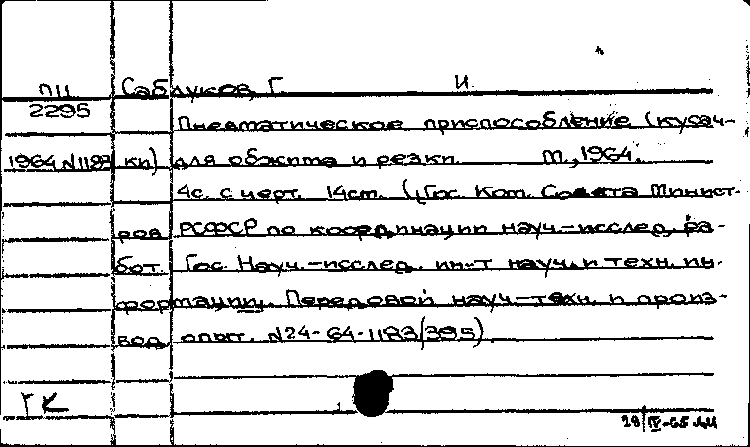 ПЦ Саблуков, Г. И
2295
Пневматическое приспособление (кусач-
1964 N1183 ки) для обжима и резки М., 1964.
4с. с черт. 14см. (Гос. Ком. Совета Минист-
ров РСФСР по координации науч.-исслед. ра-
бот. Гос. Науч.-исслед. ин-т науч. и техн. ин-
формации. Передовой науч.-техн. и произ-
вод. опыт. N24-64-1183/395)
ГК
29/IV-65